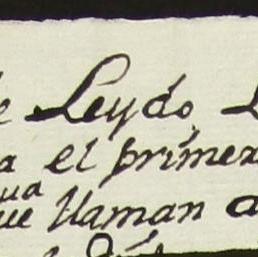 e Leydo,
a el primer
ua
ue llaman a